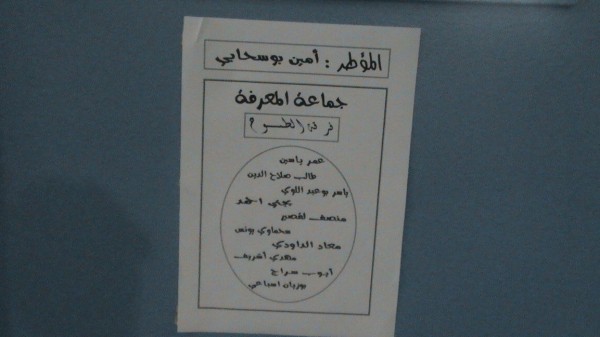 المؤطر : أمين بوسحابي
جماعة المعرفة
فرقة الطموح
عمر ياسين
طالب صلاح الدين
ياسر بوعبد اللوي
يحيى احمد
منصف لقصير
صحماوي يونس
معاد الداودي
مهدي أشريف
أيوب سراج
بوزيان اسباعي